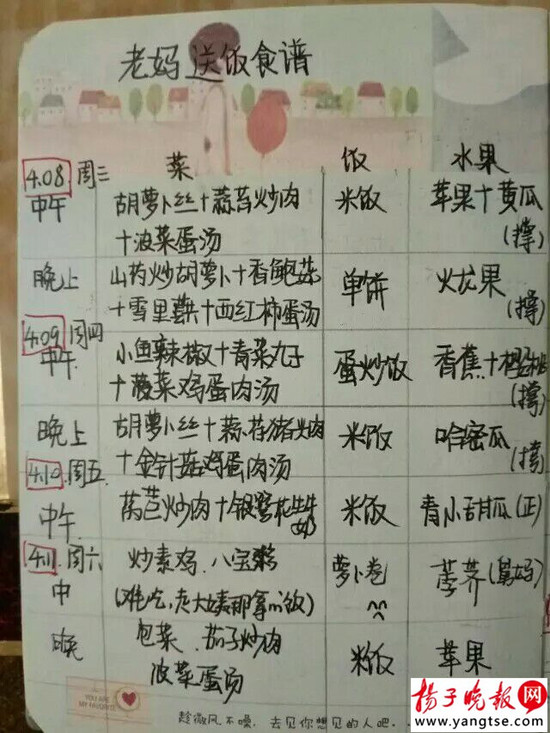 老妈送饭食谱
菜 饭 水果
4.08 周三
中午 胡萝卜丝+蒜苔炒肉 米饭 苹果+黄瓜
+波菜蛋汤 (撑)
晚上 山药炒胡萝卜+香鲍菇 单饼 火龙果
+雪里蕻+西红柿蛋汤 (撑)
4.09 周四
中午 小鱼辣椒+青菜丸子 蛋炒饭 香蕉+
+菠菜鸡蛋肉汤 (撑)
晚上 胡萝卜丝+蒜苔猪头肉 米饭 哈密瓜
+金针菇鸡蛋肉汤 (撑)
4.10 周五
中午 莴苣炒肉+银鹭花生牛奶 米饭 青小甜瓜(正)
4.11 周六
中 炒素鸡、八宝粥 萝卜卷 荸荠(舅妈)
(难吃,老大姨那拿的饭)
晚 包菜、茄子炒肉 米饭 苹果
波菜蛋汤
趁微风不噪,去见你想见的人吧..
扬子晚报网
www.yangtse.com